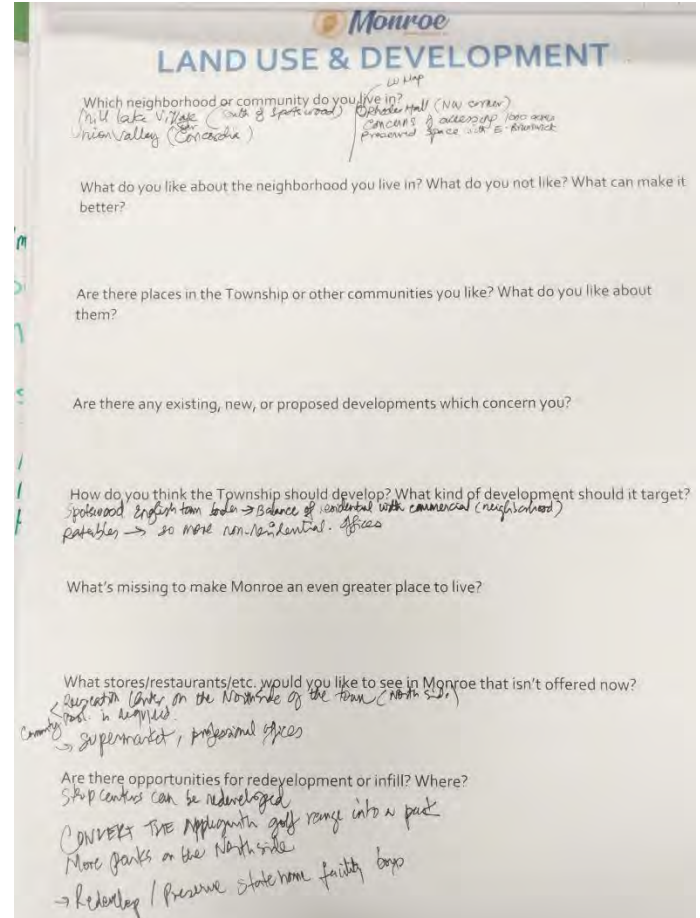 Monroe
LAND USE & DEVELOPMENT
LU Map
Which neighborhood or community do you live in?
Mill lake Village (South of Spotswood)
Union Valley (Concordia)
Rhode Hall (NW corner)
Concerns of accessing 1000 acres
Preserved space with E. Brunswick
What do you like about the neighborhood you live in? What do you not like? What can make it
better?
Are there places in the Township or other communities you like? What do you like about
them?
Are there any existing, new, or proposed developments which concern you?
How do you think the Township should develop? What kind of development should it target?
Spotswood English town border → Balance of residential with commercial (neighborhood)
Ratables → so more non-residential. offices
What's missing to make Monroe an even greater place to live?
What stores/restaurants/etc. would you like to see in Monroe that isn't offered now?
Recreation Center on the Northside of the town (North side)
Community Pool. is required.
→ supermarket, professional offices
Are there opportunities for redevelopment or infill? Where?
Strip centers can be redeveloped
CONVERT THE Applegarth golf range into a park
More parks on the Northside
→ Redevelop / Preserve state home facility boys